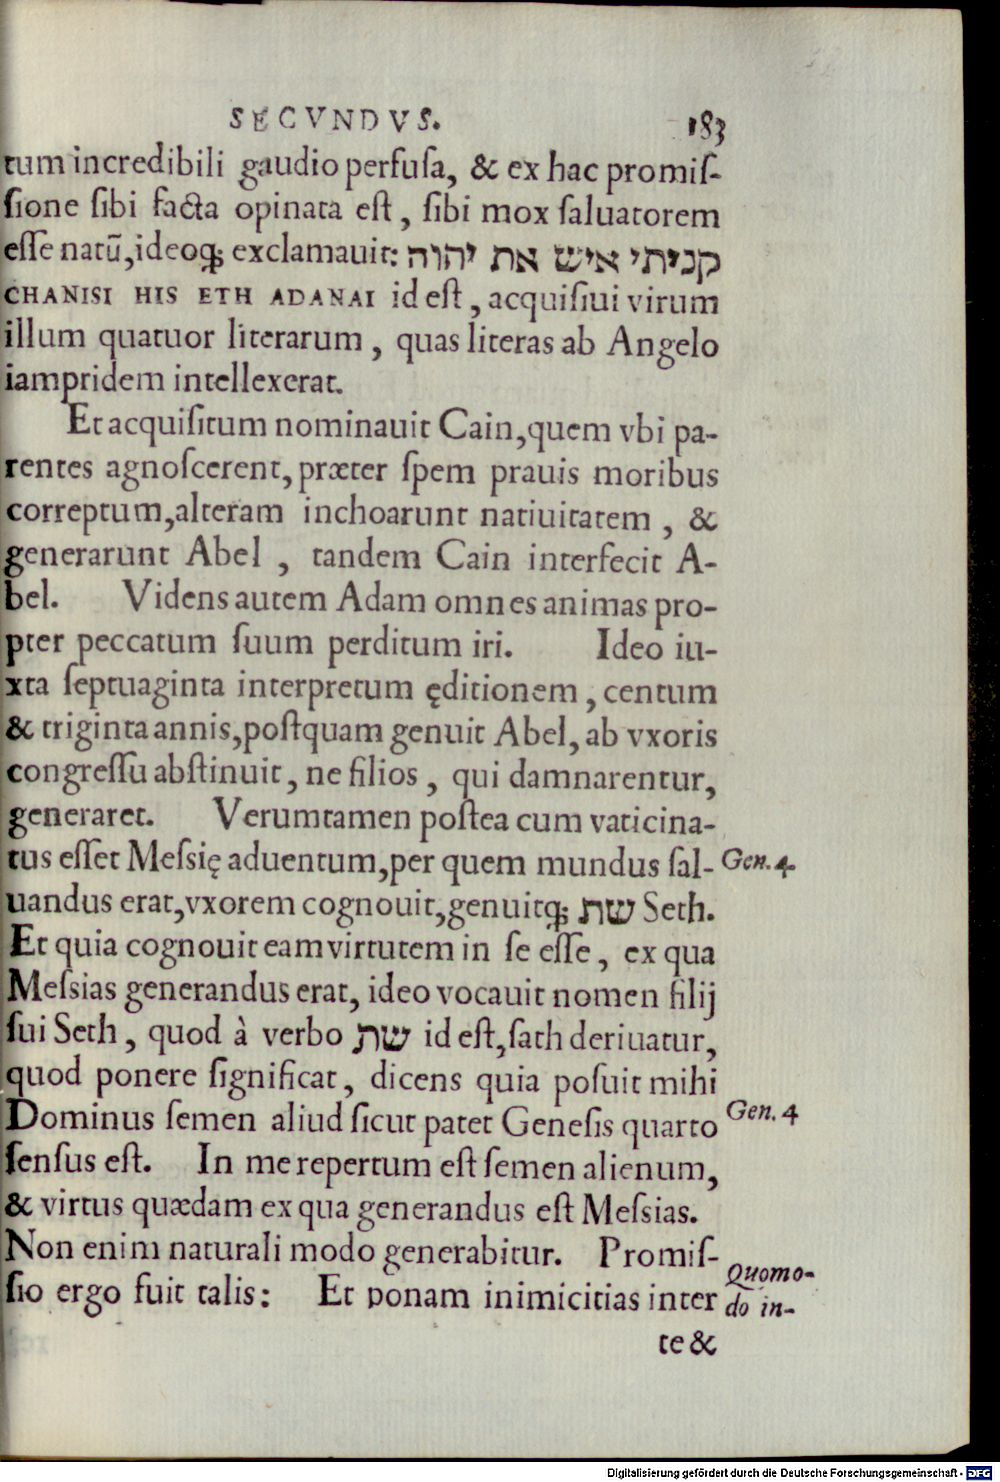 SECVNDVS. 183
tum incredibili gaudio perfusa, & ex hac promiſ-
ſione ſibi facta opinata eſt, ſibi mox ſaluatorem
eſſe natū, ideoq; exclamauit: קניתי איש את יהוה
CHANISI HIS ETH ADANAI id eſt, acquiſiui virum
illum quatuor literarum, quas literas ab Angelo
iampridem intellexerat.
Et acquiſitum nominauit Cain, quem vbi pa-
rentes agnoſcerent, præter ſpem prauis moribus
correptum, alteram inchoarunt natiuitatem, &
generarunt Abel, tandem Cain interfecit A-
bel. Videns autem Adam omnes animas pro-
pter peccatum ſuum perditum iri. Ideo iu-
xta ſeptuaginta interpretum ęditionem, centum
& triginta annis, poſtquam genuit Abel, ab vxoris
congreſſu abſtinuit, ne filios, qui damnarentur,
generaret. Verumtamen poſtea cum vaticina-
tus eſſet Meſsię aduentum, per quem mundus ſal-
Gen. 4.
uandus erat, vxorem cognouit, genuitq; שת Seth.
Et quia cognouit eam virtutem in ſe eſſe, ex qua
Meſsias generandus erat, ideo vocauit nomen filij
ſui Seth, quod à verbo שת id eſt, ſath deriuatur,
quod ponere ſignificat, dicens quia poſuit mihi
Dominus ſemen aliud ſicut patet Geneſis quarto
Gen. 4
ſenſus eſt. In me repertum eſt ſemen alienum,
& virtus quædam ex qua generandus eſt Meſsias.
Non enim naturali modo generabitur. Promiſ-
ſio ergo fuit talis: Et ponam inimicitias inter
Quomo-
do in-
te &
Digitalisierung gefördert durch die Deutsche Forschungsgemeinschaft - DFG